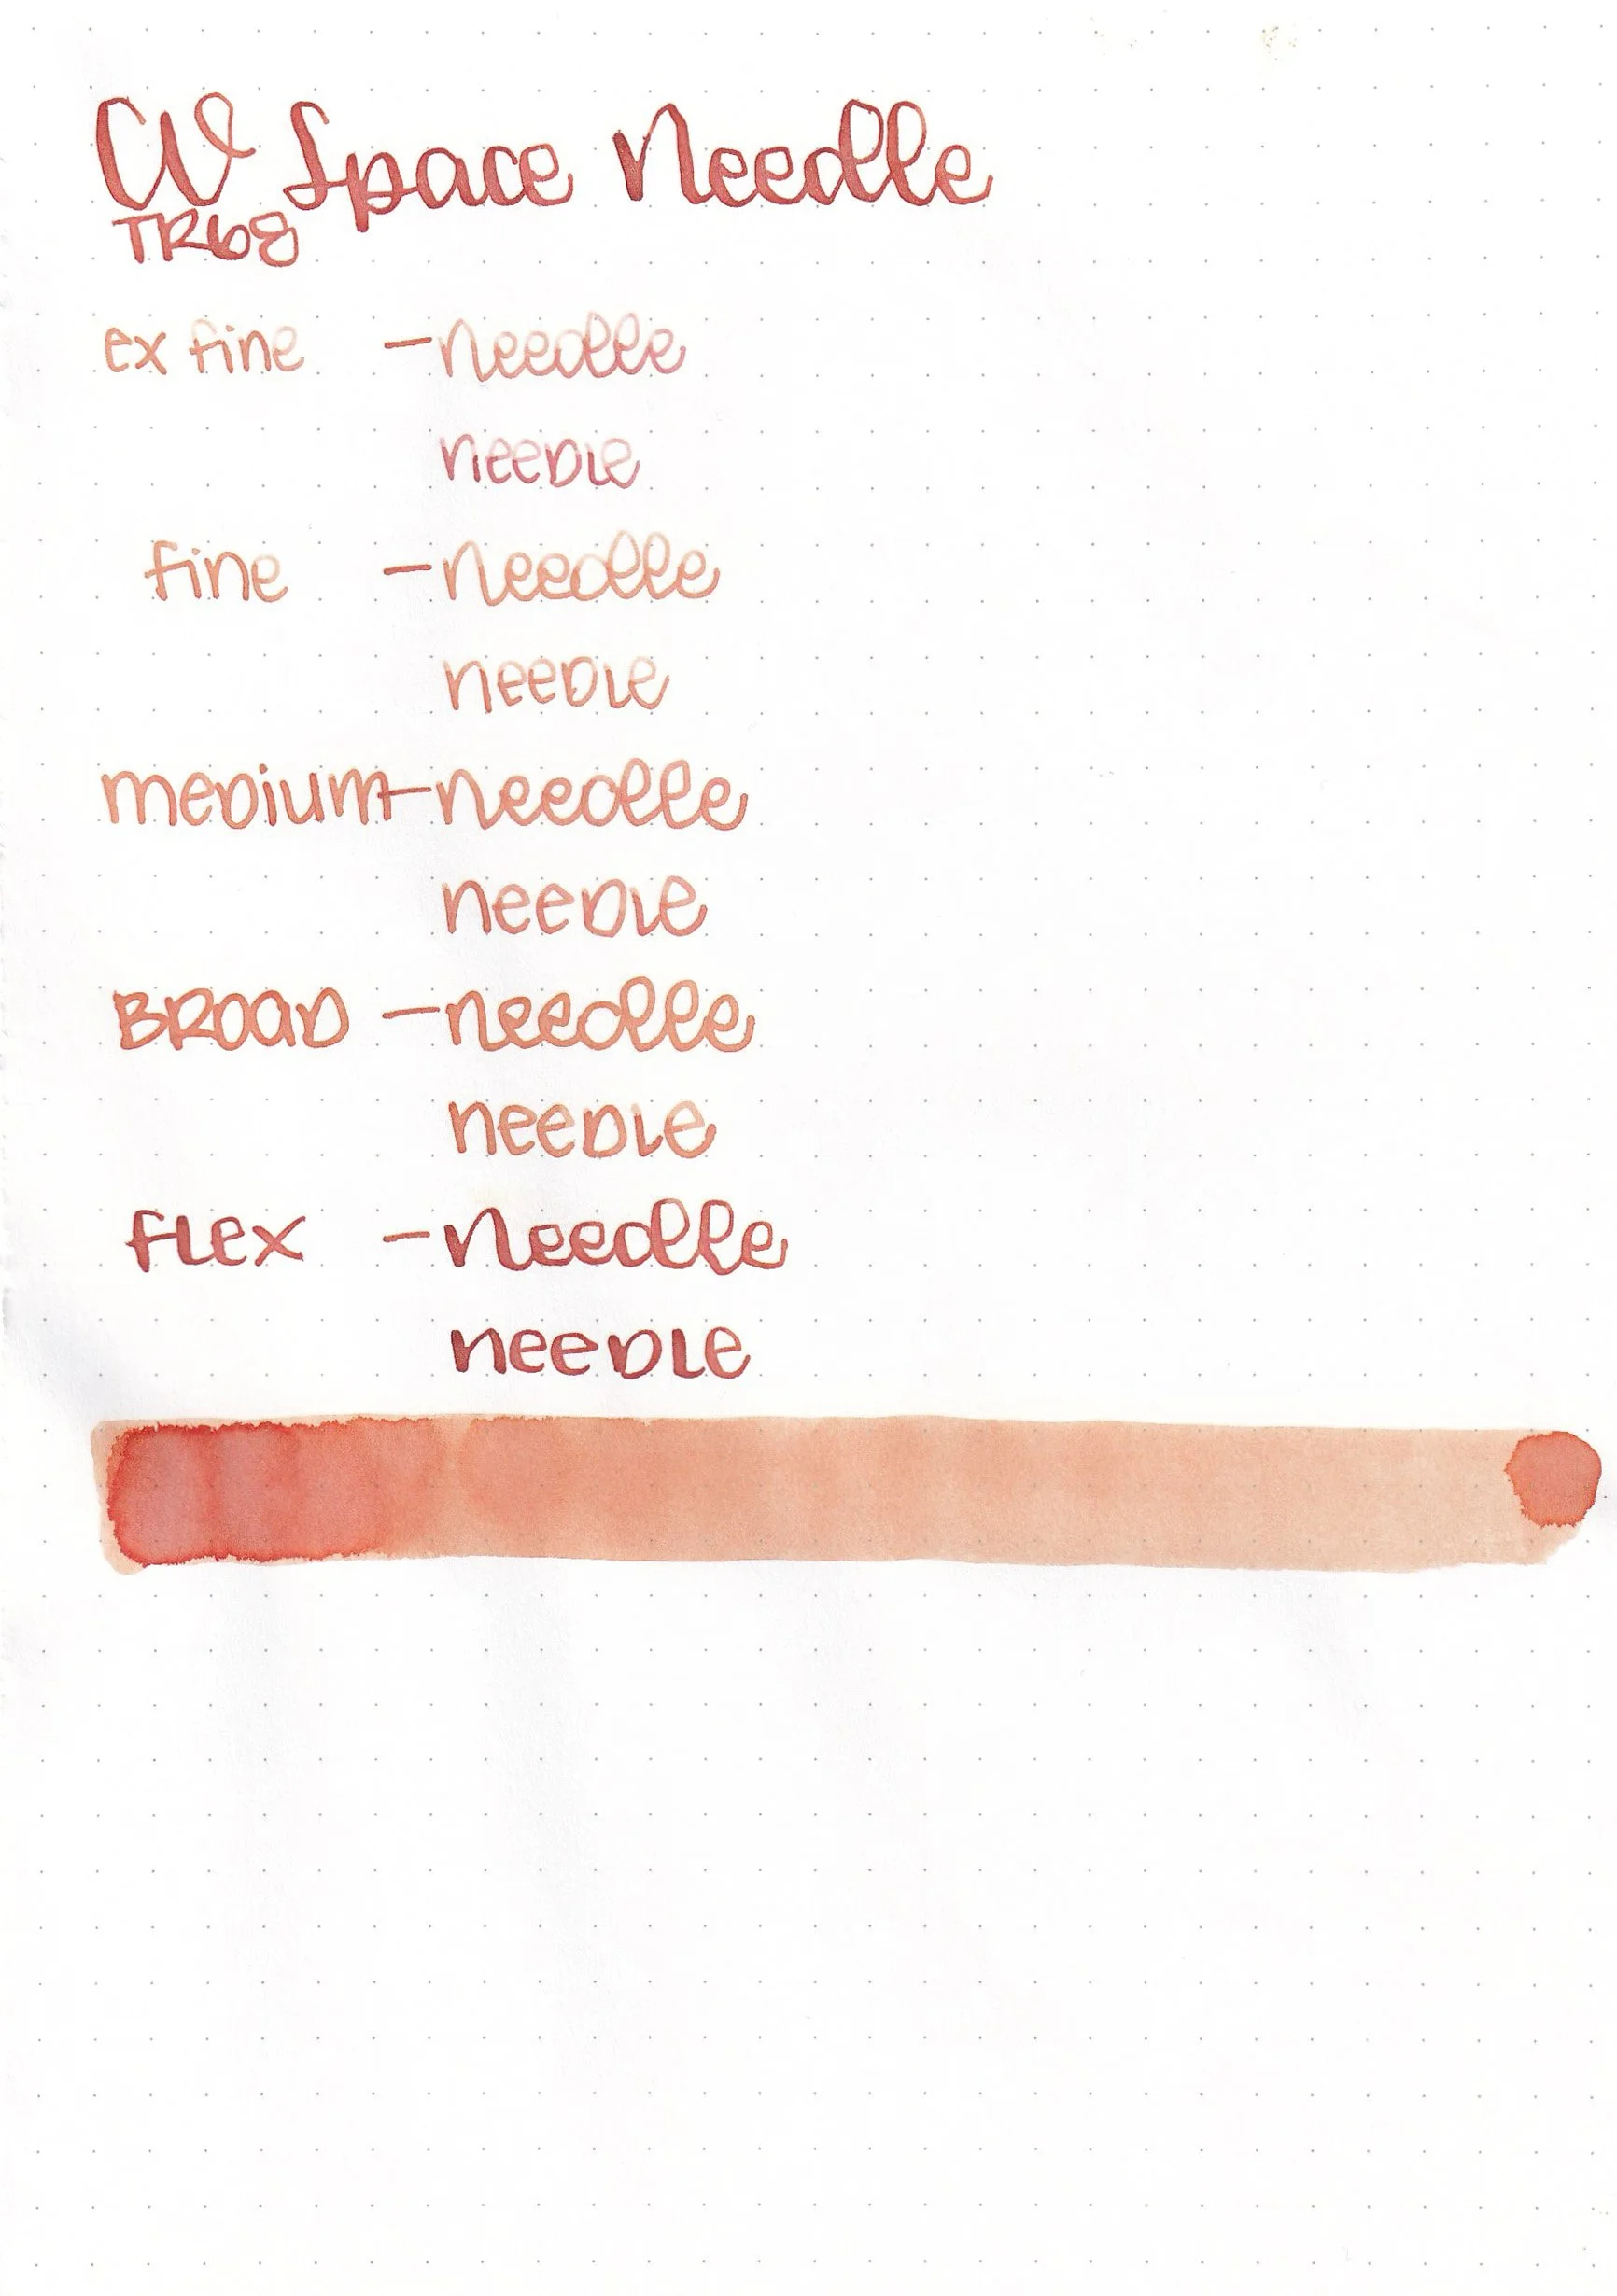 CW Space Needle
TR68
ex fine - needle
needle
fine - needle
needle
medium - needle
needle
BROAD - needle
needle
flex - needle
needle